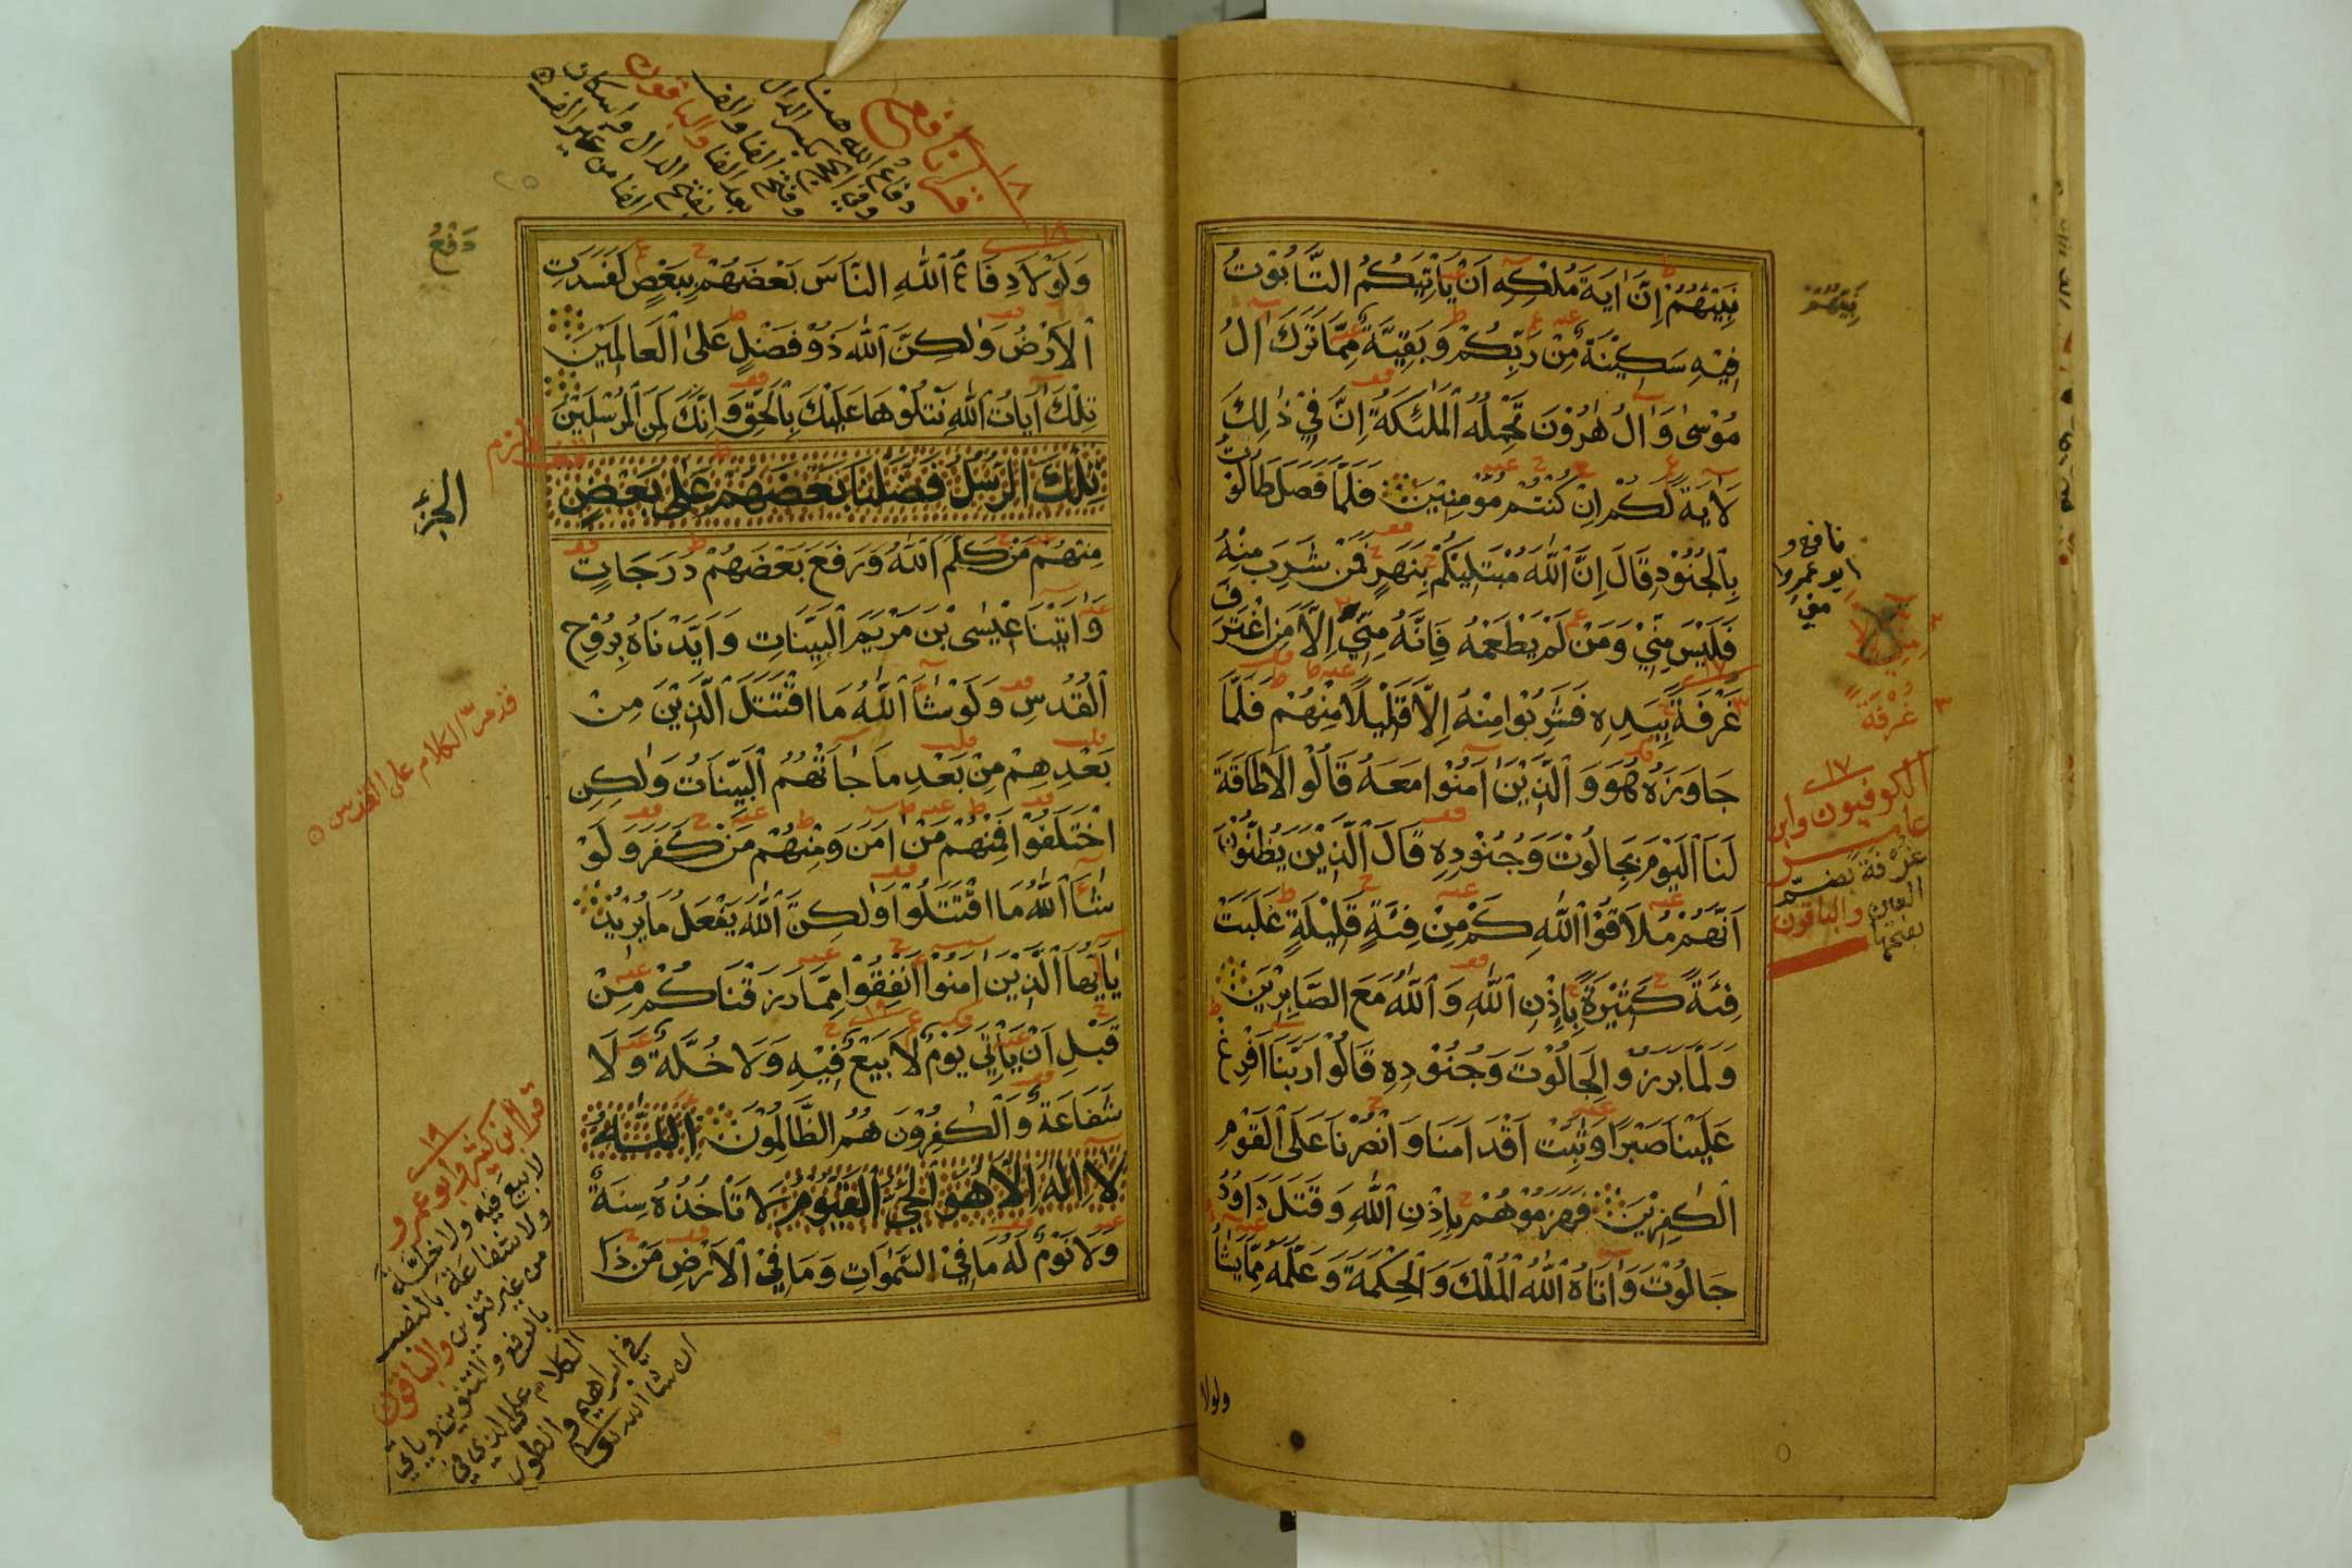 نَبِيُّهُمْ اِنَّ اٰيَةَ مُلْكِهٖ اَنْ يَاْتِيَكُمُ التَّابُوْتُ
فِيْهِ سَكِيْنَةٌ مِنْ رَبِّكُمْ وَبَقِيَّةٌ مِمَّا تَرَكَ اٰلُ
مُوْسٰى وَاٰلُ هٰرُوْنَ تَحْمِلُهُ الْمَلٰئِكَةُ اِنَّ فِيْ ذٰلِكَ
لَاٰيَةً لَكُمْ اِنْ كُنْتُمْ مُؤْمِنِيْنَ فَلَمَّا فَصَلَ طَالُوْتُ
بِالْجُنُوْدِ قَالَ اِنَّ اللّٰهَ مُبْتَلِيْكُمْ بِنَهَرٍ فَمَنْ شَرِبَ مِنْهُ
فَلَيْسَ مِنِّيْ وَمَنْ لَمْ يَطْعَمْهُ فَاِنَّهُ مِنِّيْ اِلَّا مَنِ اغْتَرَفَ
غَرْفَةً بِيَدِهٖ فَشَرِبُوْا مِنْهُ اِلَّا قَلِيْلًا مِنْهُمْ فَلَمَّا
جَاوَزَهُ هُوَ وَالَّذِيْنَ اٰمَنُوْا مَعَهُ قَالُوْا لَا طَاقَةَ
لَنَا الْيَوْمَ بِجَالُوْتَ وَجُنُوْدِهٖ قَالَ الَّذِيْنَ يَظُنُّوْنَ
اَنَّهُمْ مُلَاقُوْا اللّٰهِ كَمْ مِنْ فِئَةٍ قَلِيْلَةٍ غَلَبَتْ
فِئَةً كَثِيْرَةً بِاِذْنِ اللّٰهِ وَاللّٰهُ مَعَ الصَّابِرِيْنَ
وَلَمَّا بَرَزُوْا لِجَالُوْتَ وَجُنُوْدِهٖ قَالُوْا رَبَّنَا اَفْرِغْ
عَلَيْنَا صَبْرًا وَثَبِّتْ اَقْدَامَنَا وَانْصُرْنَا عَلَى الْقَوْمِ
الْكٰفِرِيْنَ فَهَزَمُوْهُمْ بِاِذْنِ اللّٰهِ وَقَتَلَ دَاوُدُ
جَالُوْتَ وَاٰتَاهُ اللّٰهُ الْمُلْكَ وَالْحِكْمَةَ وَعَلَّمَهُ مِمَّا يَشَآءُ
ولولا
نَبِيُّهُمْ
نافع و
ابو عمرو
مني
غُرْفَةً
١٧
الكوفيون وابن
عامر
غرفة بضم
الغين والباقون
بفتحها
وَلَوْلَا دِفَاعُ اللّٰهِ النَّاسَ بَعْضَهُمْ بِبَعْضٍ لَفَسَدَتِ
الْاَرْضُ وَلٰكِنَّ اللّٰهَ ذُوْ فَضْلٍ عَلَى الْعَالَمِيْنَ
تِلْكَ اٰيَاتُ اللّٰهِ نَتْلُوْهَا عَلَيْكَ بِالْحَقِّ وَاِنَّكَ لَمِنَ الْمُرْسَلِيْنَ
تِلْكَ الرُّسُلُ فَضَّلْنَا بَعْضَهُمْ عَلٰى بَعْضٍ
مِنْهُمْ مَنْ كَلَّمَ اللّٰهُ وَرَفَعَ بَعْضَهُمْ دَرَجَاتٍ
وَاٰتَيْنَا عِيْسَى بْنَ مَرْيَمَ الْبَيِّنَاتِ وَاَيَّدْنَاهُ بِرُوْحِ
الْقُدُسِ وَلَوْ شَآءَ اللّٰهُ مَا اقْتَتَلَ الَّذِيْنَ مِنْ
بَعْدِهِمْ مِنْ بَعْدِ مَا جَآءَتْهُمُ الْبَيِّنَاتُ وَلٰكِنِ
اخْتَلَفُوْا فَمِنْهُمْ مَنْ اٰمَنَ وَمِنْهُمْ مَنْ كَفَرَ وَلَوْ
شَآءَ اللّٰهُ مَا اقْتَتَلُوْا وَلٰكِنَّ اللّٰهَ يَفْعَلُ مَا يُرِيْدُ
يَآ اَيُّهَا الَّذِيْنَ اٰمَنُوْا اَنْفِقُوْا مِمَّا رَزَقْنَاكُمْ مِنْ
قَبْلِ اَنْ يَاْتِيَ يَوْمٌ لَا بَيْعٌ فِيْهِ وَلَا خُلَّةٌ وَلَا
شَفَاعَةٌ وَالْكٰفِرُوْنَ هُمُ الظَّالِمُوْنَ اَللّٰهُ
لَا اِلٰهَ اِلَّا هُوَ الْحَيُّ الْقَيُّوْمُ لَا تَاْخُذُهُ سِنَةٌ
وَلَا نَوْمٌ لَهُ مَا فِيْ السَّمٰوَاتِ وَمَا فِيْ الْاَرْضِ مَنْ ذَا
١٨
قرا نافع
دفاع الله هنا
وفي الحج بكسر الدال
وفتح الفا والف
بعد الفا والباقون
بفتح الدال واسكان
الفا من غير الف
دَفْعُ
الجزء
وقف لازم
قد مرّ الكلام على القدس
١٩
قرا ابن كثير وابو عمرو
لا بيع فيه ولا خلة
ولا شفاعة بالنصب
من غير تنوين والباقون
بالرفع والتنوين وياتي
الكلام على الذي في
في ابراهيم والطور
ان شا الله تعالى